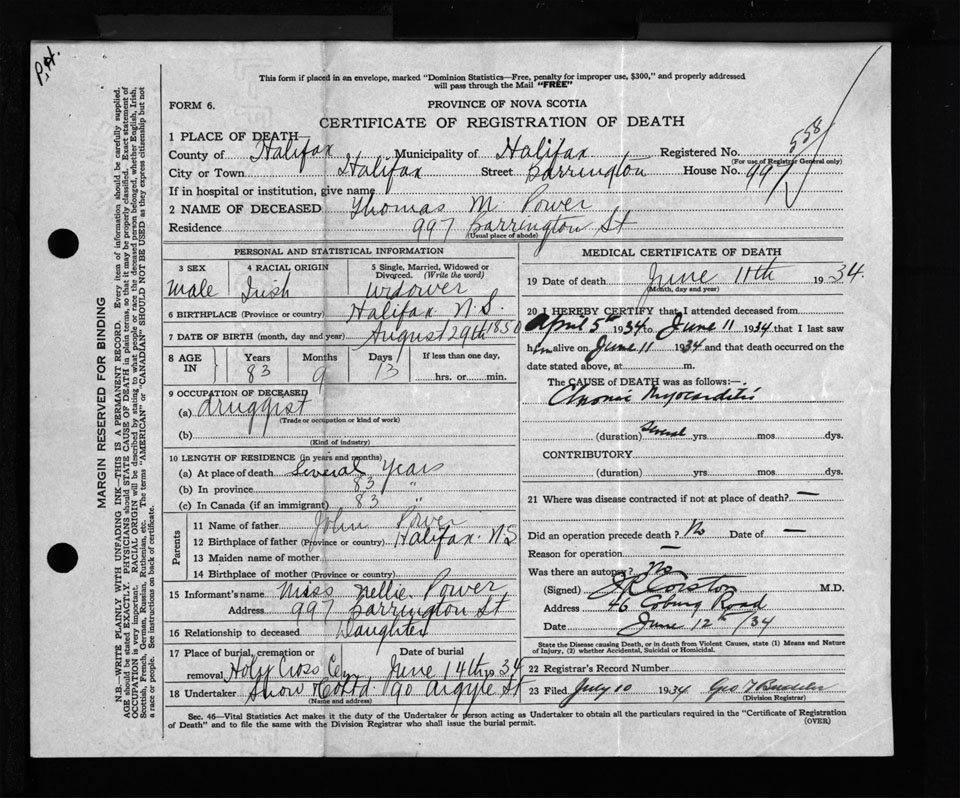 P.H.
This form if placed in an envelope, marked "Dominion Statistics—Free, penalty for improper use, $300," and properly addressed
will pass through the Mail "FREE"
FORM 6.
PROVINCE OF NOVA SCOTIA
CERTIFICATE OF REGISTRATION OF DEATH
558
1 PLACE OF DEATH—
County of Halifax Municipality of Halifax Registered No.
(For use of Registrar General only)
City or Town Halifax Street Barrington House No. 997
If in hospital or institution, give name
2 NAME OF DECEASED Thomas M. Power
Residence 997 Barrington St
(Usual place of abode)
PERSONAL AND STATISTICAL INFORMATION
3 SEX 4 RACIAL ORIGIN 5 Single, Married, Widowed or
Divorced. (Write the word)
Male Irish Widower
6 BIRTHPLACE (Province or country) Halifax N.S.
7 DATE OF BIRTH (month, day, and year) August 29th 1850
8 AGE IN Years Months Days If less than one day,
83 9 13 hrs. or min.
9 OCCUPATION OF DECEASED
(a) druggist
(Trade or occupation or kind of work)
(b)
(Kind of industry)
10 LENGTH OF RESIDENCE (in years and months)
(a) At place of death Several Years
(b) In province 83 "
(c) In Canada (if an immigrant) 83 "
Parents
11 Name of father John Power
12 Birthplace of father (Province or country) Halifax. N.S
13 Maiden name of mother
14 Birthplace of mother (Province or country)
15 Informant's name Miss Nellie Power
Address 997 Barrington St
16 Relationship to deceased Daughter
17 Place of burial, cremation or Date of burial
removal Holy Cross Cem June 14th 1934
18 Undertaker Snow & Co Ltd. 90 Argyle St
(Name and address)
MEDICAL CERTIFICATE OF DEATH
19 Date of death June 11th 1934.
(Month, day and year)
20 I HEREBY CERTIFY that I attended deceased from
April 5th 1934 to June 11 1934 that I last saw
him alive on June 11 1934 and that death occurred on the
date stated above, at m.
The CAUSE of DEATH was as follows:—
Chronic Myocarditis
(duration) Several yrs mos dys.
CONTRIBUTORY
(duration) yrs mos dys.
21 Where was disease contracted if not at place of death? —
Did an operation precede death? No Date of —
Reason for operation —
Was there an autopsy? No
(Signed) M.D.
Address 46 Coburg Road
Date June 12th /34
State the Disease causing Death, or in death from Violent Causes, state (1) Means and Nature
of Injury, (2) whether Accidental, Suicidal or Homicidal.
22 Registrar's Record Number
23 Filed July 10 1934 Geo
(Division Registrar)
Sec. 46—Vital Statistics Act makes it the duty of the Undertaker or person acting as Undertaker to obtain all the particulars required in the "Certificate of Registration
of Death" and to file the same with the Division Registrar who shall issue the burial permit. (OVER)
MARGIN RESERVED FOR BINDING
N.B.—WRITE PLAINLY WITH UNFADING INK—THIS IS A PERMANENT RECORD. Every item of information should be carefully supplied.
AGE should be stated EXACTLY. PHYSICIANS should STATE CAUSE OF DEATH in plain terms, so that it may be properly classified. Exact statement of
OCCUPATION is very important. RACIAL ORIGIN will be described by stating to what people or race the deceased person belonged, whether English, Irish,
Scottish, French, German, Russian, Ruthenian, etc. The terms "AMERICAN" or "CANADIAN" SHOULD NOT BE USED as they express citizenship but not
a race or people. See instructions on back of certificate.